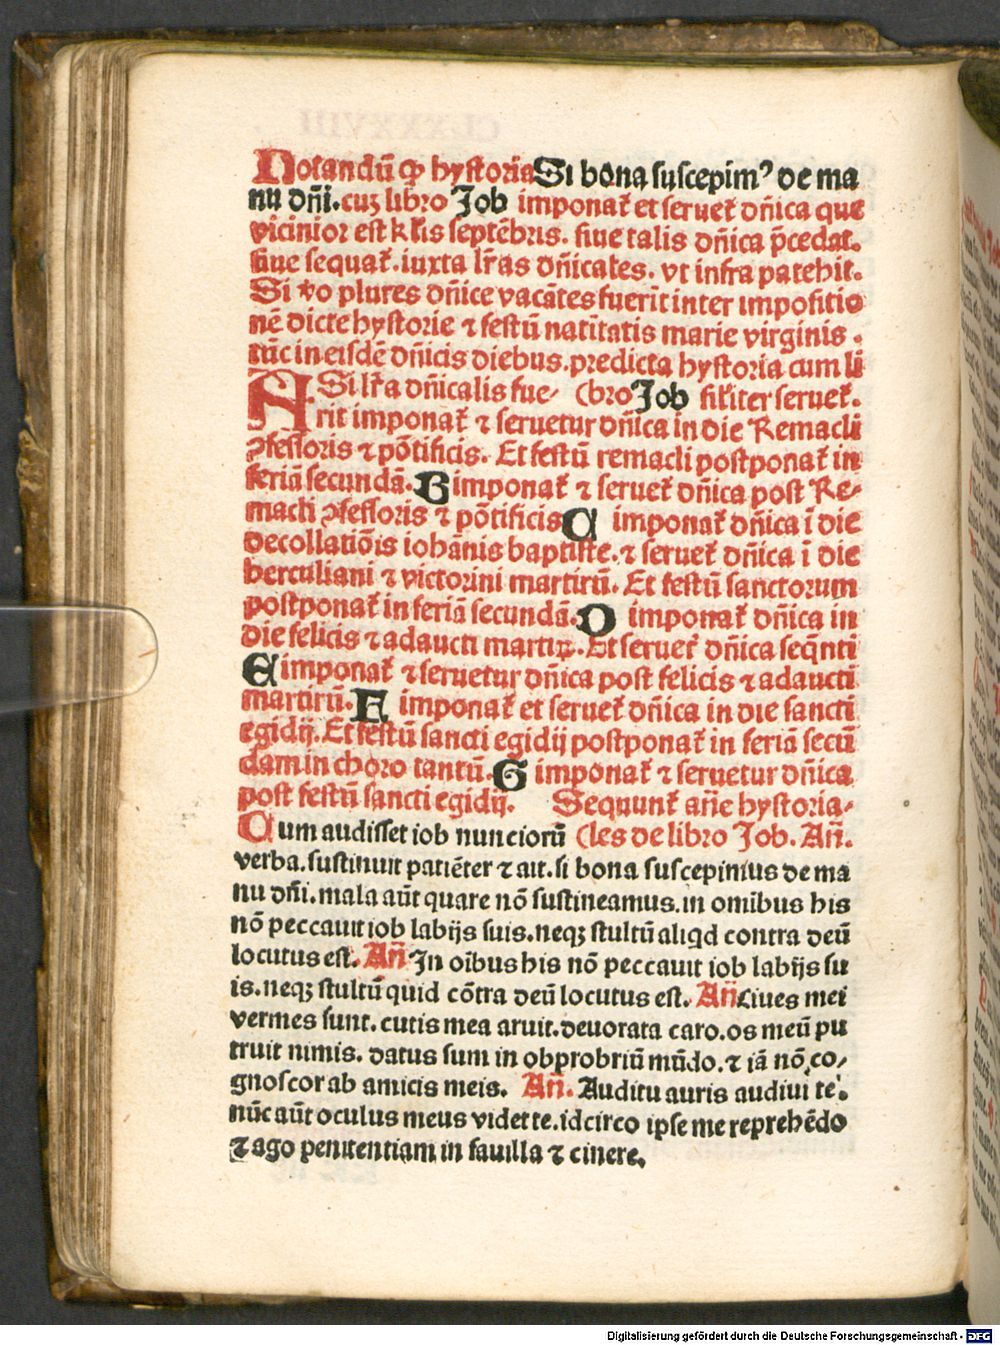 Notandū ꝙ hystoria Si bona suscepimꝰ de ma
nu dn̄i. cuꝫ libro Job imponat᷑ et seruet᷑ dn̄ica que
vicinior est kl̄is septēbris. siue talis dn̄ica p̄cedat.
siue sequat᷑. iuxta lr̄as dn̄icales. vt infra patebit.
Si v̄o plures dn̄ice vacātes fuerīt inter impositio
nē dicte hystorie ⁊ festū natītatis marie virginis.
tūc in eisdē dn̄icis diebus. predicta hystoria cum li
A Si lr̄a dn̄icalis fue⸗ (bro Job sil̄iter seruet᷑.
rit imponat᷑ ⁊ seruetur dn̄ica in die Remacli
ꝯfessoris ⁊ pōtificis. Et festū remacli postponat᷑ in
feriā secundā. B imponat᷑ ⁊ seruet᷑ dn̄ica post Re⸗
macli ꝯfessoris ⁊ pōtificis C imponat᷑ dn̄ica ī die
decollatiōis iohānis baptiste. ⁊ seruet᷑ dn̄ica ī die
herculiani ⁊ victorini martirū. Et festū sanctorum
postponat᷑ in feriā secundā. D imponat᷑ dn̄ica in
die felicis ⁊ adaucti martiꝝ. Et seruet᷑ dn̄ica seq̄nti
E imponat᷑ ⁊ seruetur dn̄ica post felicis ⁊ adaucti
martirū. F imponat᷑ et seruet᷑ dn̄ica in die sancti
egidij. Et festū sancti egidij postponat᷑ in feriā secū
dam in choro tantū. G imponat᷑ ⁊ seruetur dn̄ica
post festū sancti egidij. Sequunt᷑ an̄e hystoria⸗
Cum audisset iob nunciorū (les de libro Job. An̄.
verba. sustinuit patiēter ⁊ ait. si bona suscepimus de ma
nu dn̄i. mala aūt quare nō sustineamus. in omībus his
nō peccauit iob labijs suis. neqꝫ stultū aliqd contra deū
locutus est. An̄ In oībus his nō peccauit iob labijs su
is. neqꝫ stultū quid cōtra deū locutus est. An̄ Ciues mei
vermes sunt. cutis mea aruit. deuorata caro. os meū pu
truit nimis. datus sum in obprobriū mūdo. ⁊ iā nō co⸗
gnoscor ab amicis meis. An̄. Auditu auris audiui te.
nūc aūt oculus meus videt te. idcirco ipse me reprehēdo
⁊ ago penitentiam in fauilla ⁊ cinere.
Digitalisierung gefördert durch die Deutsche Forschungsgemeinschaft - DFG